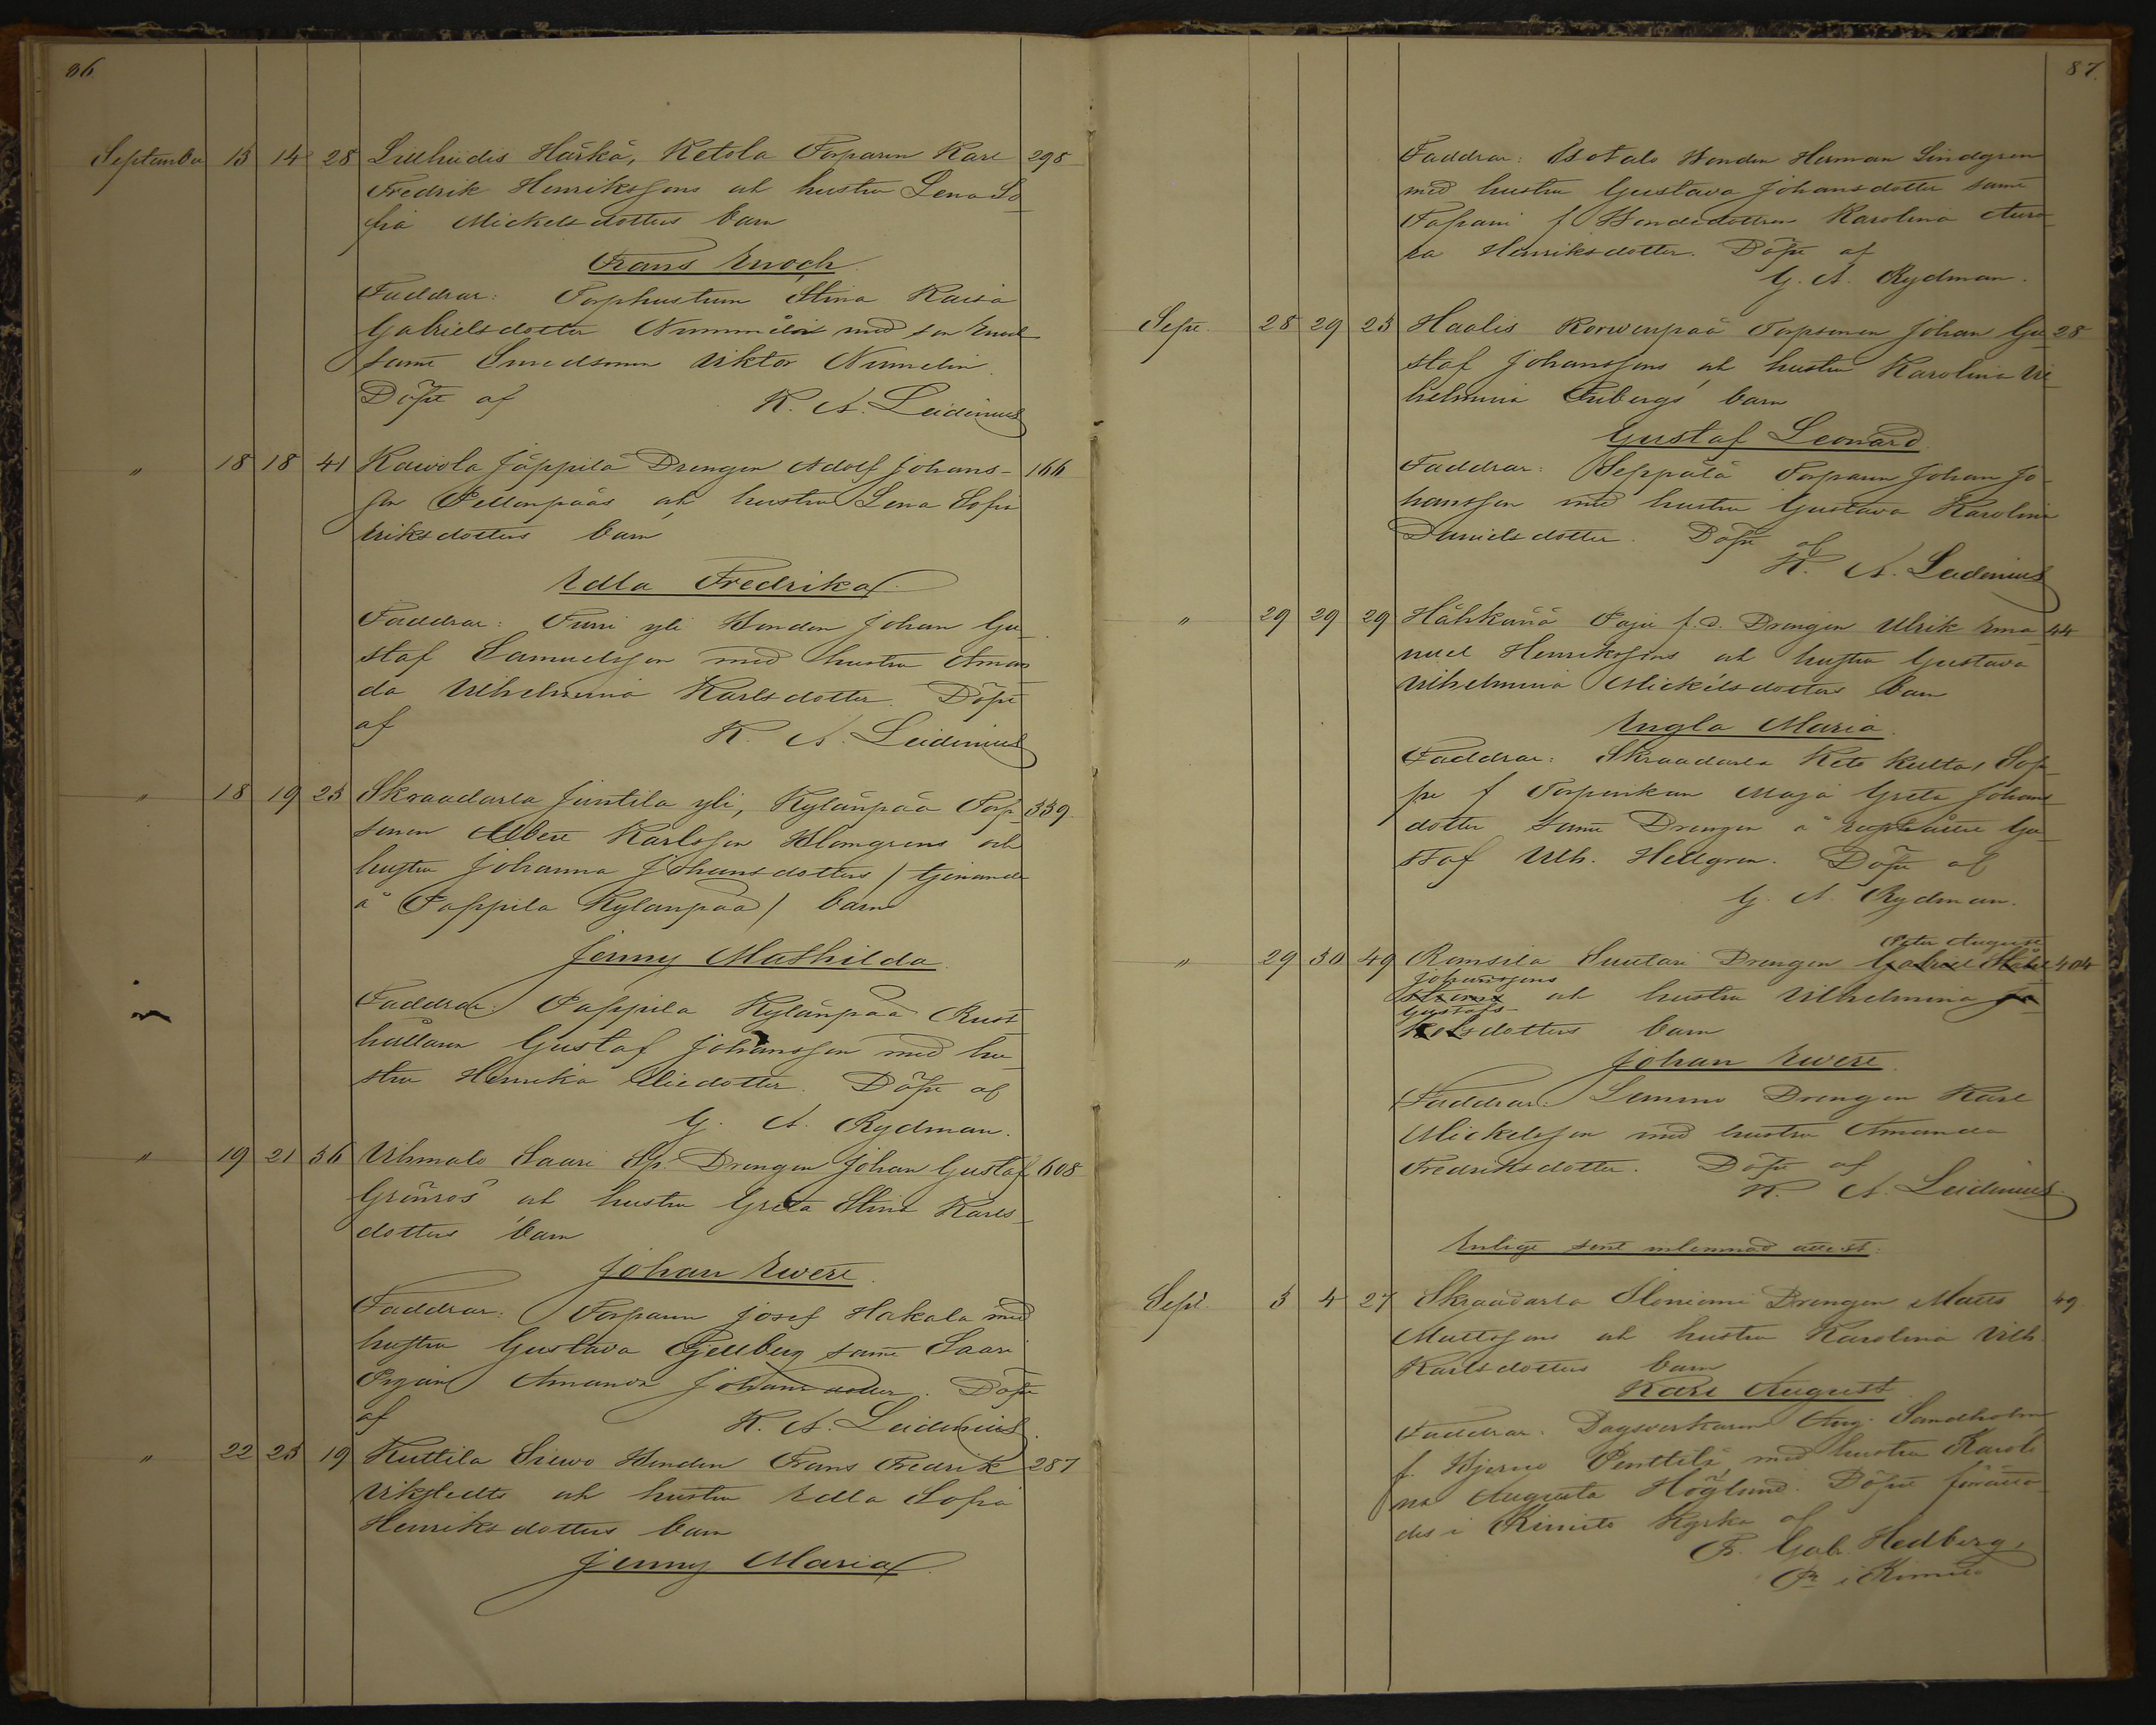 86.
September 13 14 28 Liuhiidis Härkä, Ketola Torparen Karl 298
Fredrik Henrikssons och hustru Lena So
fia Mickelsdotters barn
Frans Enoch
Faddrar: Torphustrun Stina Kaisa
Gabrielsdotter med son
samt Smedsonen Viktor Numelin.
Döpt af K. A. Leidenius
" 18 18 41 Kaivola Jäppilä Drengen Adolf Johans- 166
son Pellonpääs och hustru Lena Sofia
Eriksdotters barn
Edla Fredrika
Faddrar: yli Bonden Johan Gu
staf Samuelsson med hustru Aman
da Vilhelmina Karlsdotter. Döpt
af K. A. Leidenius
" 18 19 23 Skraadarla Juntila yli, Kylänpää Torp 339
sonen Albert Karlsson Blomgrens och
hustru Johanna Johansdotters / tjenande
å Pappila Kylänpää / barn
Jenny Mathilda
Faddrar: Pappila Kylänpää Rust
hållaren Gustaf Johansson med hu
stru Henrika Eliedotter. Döpt af
G. A. Rydman.
" 19 21 36 Vihmalo Saari Sp. Drengen Johan Gustaf 608
Grönros och hustru Greta Stina Karls
dotters barn
Johan Evert
Faddrar: Torparen Josef Hakala med
hustru Gustava Gjellberg samt Saari
Pigan Amanda Johansdotter. Döpt
af K. A. Leidenius
" 22 23 19 Kuttila Sievo Bonden Frans Fredrik 287
Vikstedts och hustru Edla Sofia
Henriksdotters barn
Jenny Maria
87.
Faddrar: Isotalo Bonden Herman Lindgren
med hustru Gustava Johansdotter samt
Papani f Bondedottren Karolina Auro
ra Henriksdotter. Döpt af
G. A. Rydman.
Sept. 28 29 23 Haalis Korvenpää Torpsonen Johan Gu 28
staf Johanssons och hustru Karolina Vil
helmina barn
Gustaf Leonard
Faddrar: Seppälä Torparen Johan Jo
hansson med hustru Gustava Karolina
Danielsdotter. Döpt af
K. A. Leidenius
" 29 29 29 Hähkänä Paju f.d. Drengen Ulrik Ema 44
nuel Henrikssons och hustru Gustava
Vilhelmina Mickelsdotters barn
Engla Maria
Faddrar: Skraadarla Keto Kulta,
f Torparenkan Maja Greta Johans
dotter samt Drengen å Gu
staf Vilh. Hellgren. Döpt af
G. A. Rydman.
Peter August
" 29 30 49 Romsila Suutari Drengen Gabriel 404
Johanssons
och hustru Vilhelmina
Gustafs-
dotters barn
Johan Evert
Faddrar: Lemmo Drengen Karl
Mickelsson med hustru Amanda
Fredriksdotter. Döpt af
K. A. Leidenius
Enligt sent inlemnad attest:
Sept. 3 4 27 Skraadarla Drengen Matts 49
Mattssons och hustru Karolina Vilh.
Karlsdotters barn
Karl August
Faddrar: Dagsverkaren Aug. Sandholm
f. Bjerno Penttilä med hustru Karoli
na Augusta Höglund. Döpt förrätta
des i Kimito Kyrka af
F. Gab. Hedberg,
Pr. i Kimito